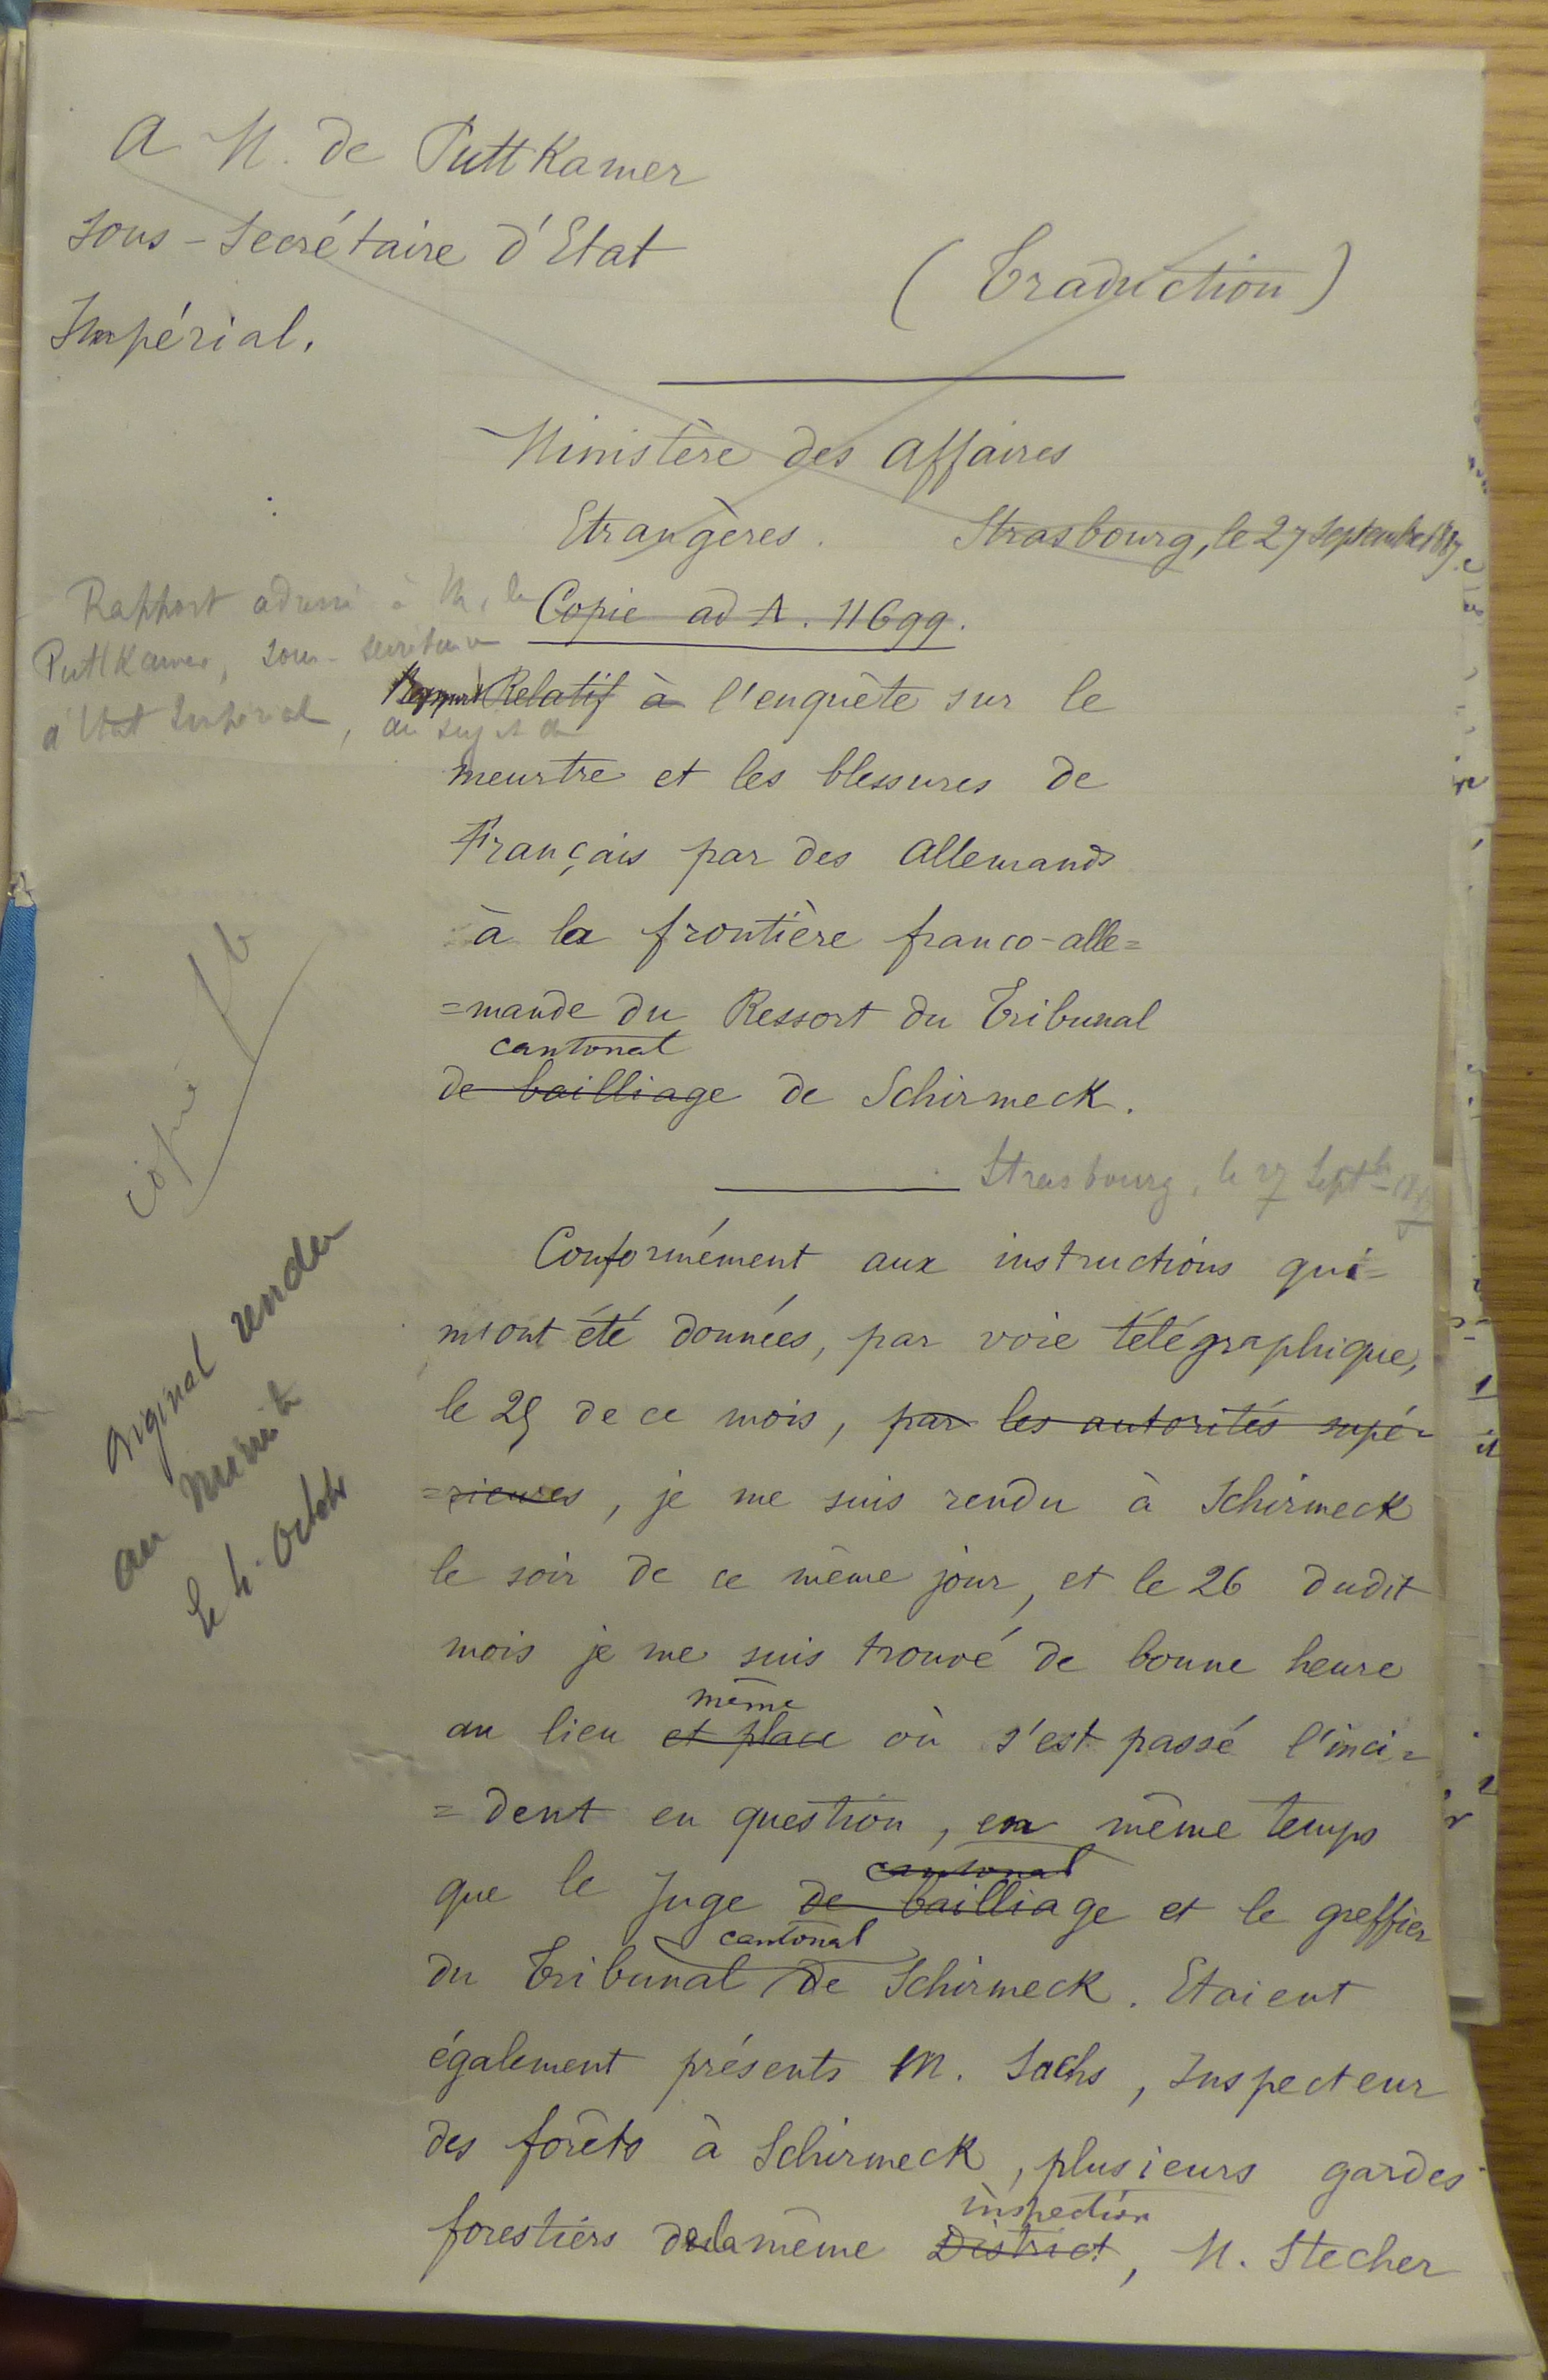 A M. de PuttKamer
sous-secrétaire d'Etat
Impérial.
(Traduction)
Ministère des Affaires
Etrangères.
Strasbourg, le 27 septembre 1887
Copie ad A. 11699.
Rapport adressé à M. de
PuttKamer, sous-secrétaire
d'Etat Impérial, au sujet de
Rapport Relatif à l'enquête sur le
meurtre et les blessures de
Français par des Allemands
à la frontière franco-alle=
=mande du Ressort du Tribunal
cantonal
de bailliage de Schirmeck.
Strasbourg, le 27 Sept
Conformément aux instructions qui=
m'ont été données, par voie télégraphique,
le 25 de ce mois, par les autorités supé=
=rieures, je me suis rendu à Schirmeck
le soir de ce même jour, et le 26 dudit
mois je me suis trouvé de bonne heure
même
au lieu et place où s'est passé l'inci=
=dent en question, en même temps
cantonal
que le Juge de bailliage et le greffier
cantonal
du Tribunal de Schirmeck. Etaient
également présents M. Sachs, Inspecteur
des forêts à Schirmeck, plusieurs gardes
inspection
forestiers de la même District, M. Stecher
copié
Original rendu
au
le 4 Octobre